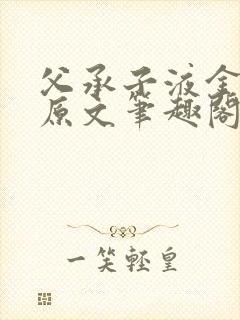 父承子液全
原文笔趣阁
一笑轻皇